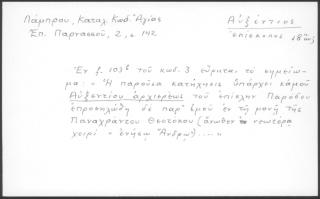 Λάμπρου, Καταλ. Κωδ. Αγίας
Αὐξέντιος
Ἐπ. Παρνασσοῦ, 2, σ. 142
ἐπίσκοπος 18ος
Ἐν f. 103β τοῦ κωδ. 3 εὕρηται τὸ σημείω-
μα - Ἡ παροῦσα κατήχησις ὑπάρχει κἀμοῦ
Αὐξεντίου ἀρχιερέως τοῦ ἐπίκλην
ἐπροσηλώθη δὲ παρ' ἐμοῦ ἐν τῇ μονῇ τῆς
Παναχράντου Θεοτόκου (ἄνωθεν νεωτέρᾳ
χειρὶ - ἐνήσῳ Ἄνδρῳ)....»